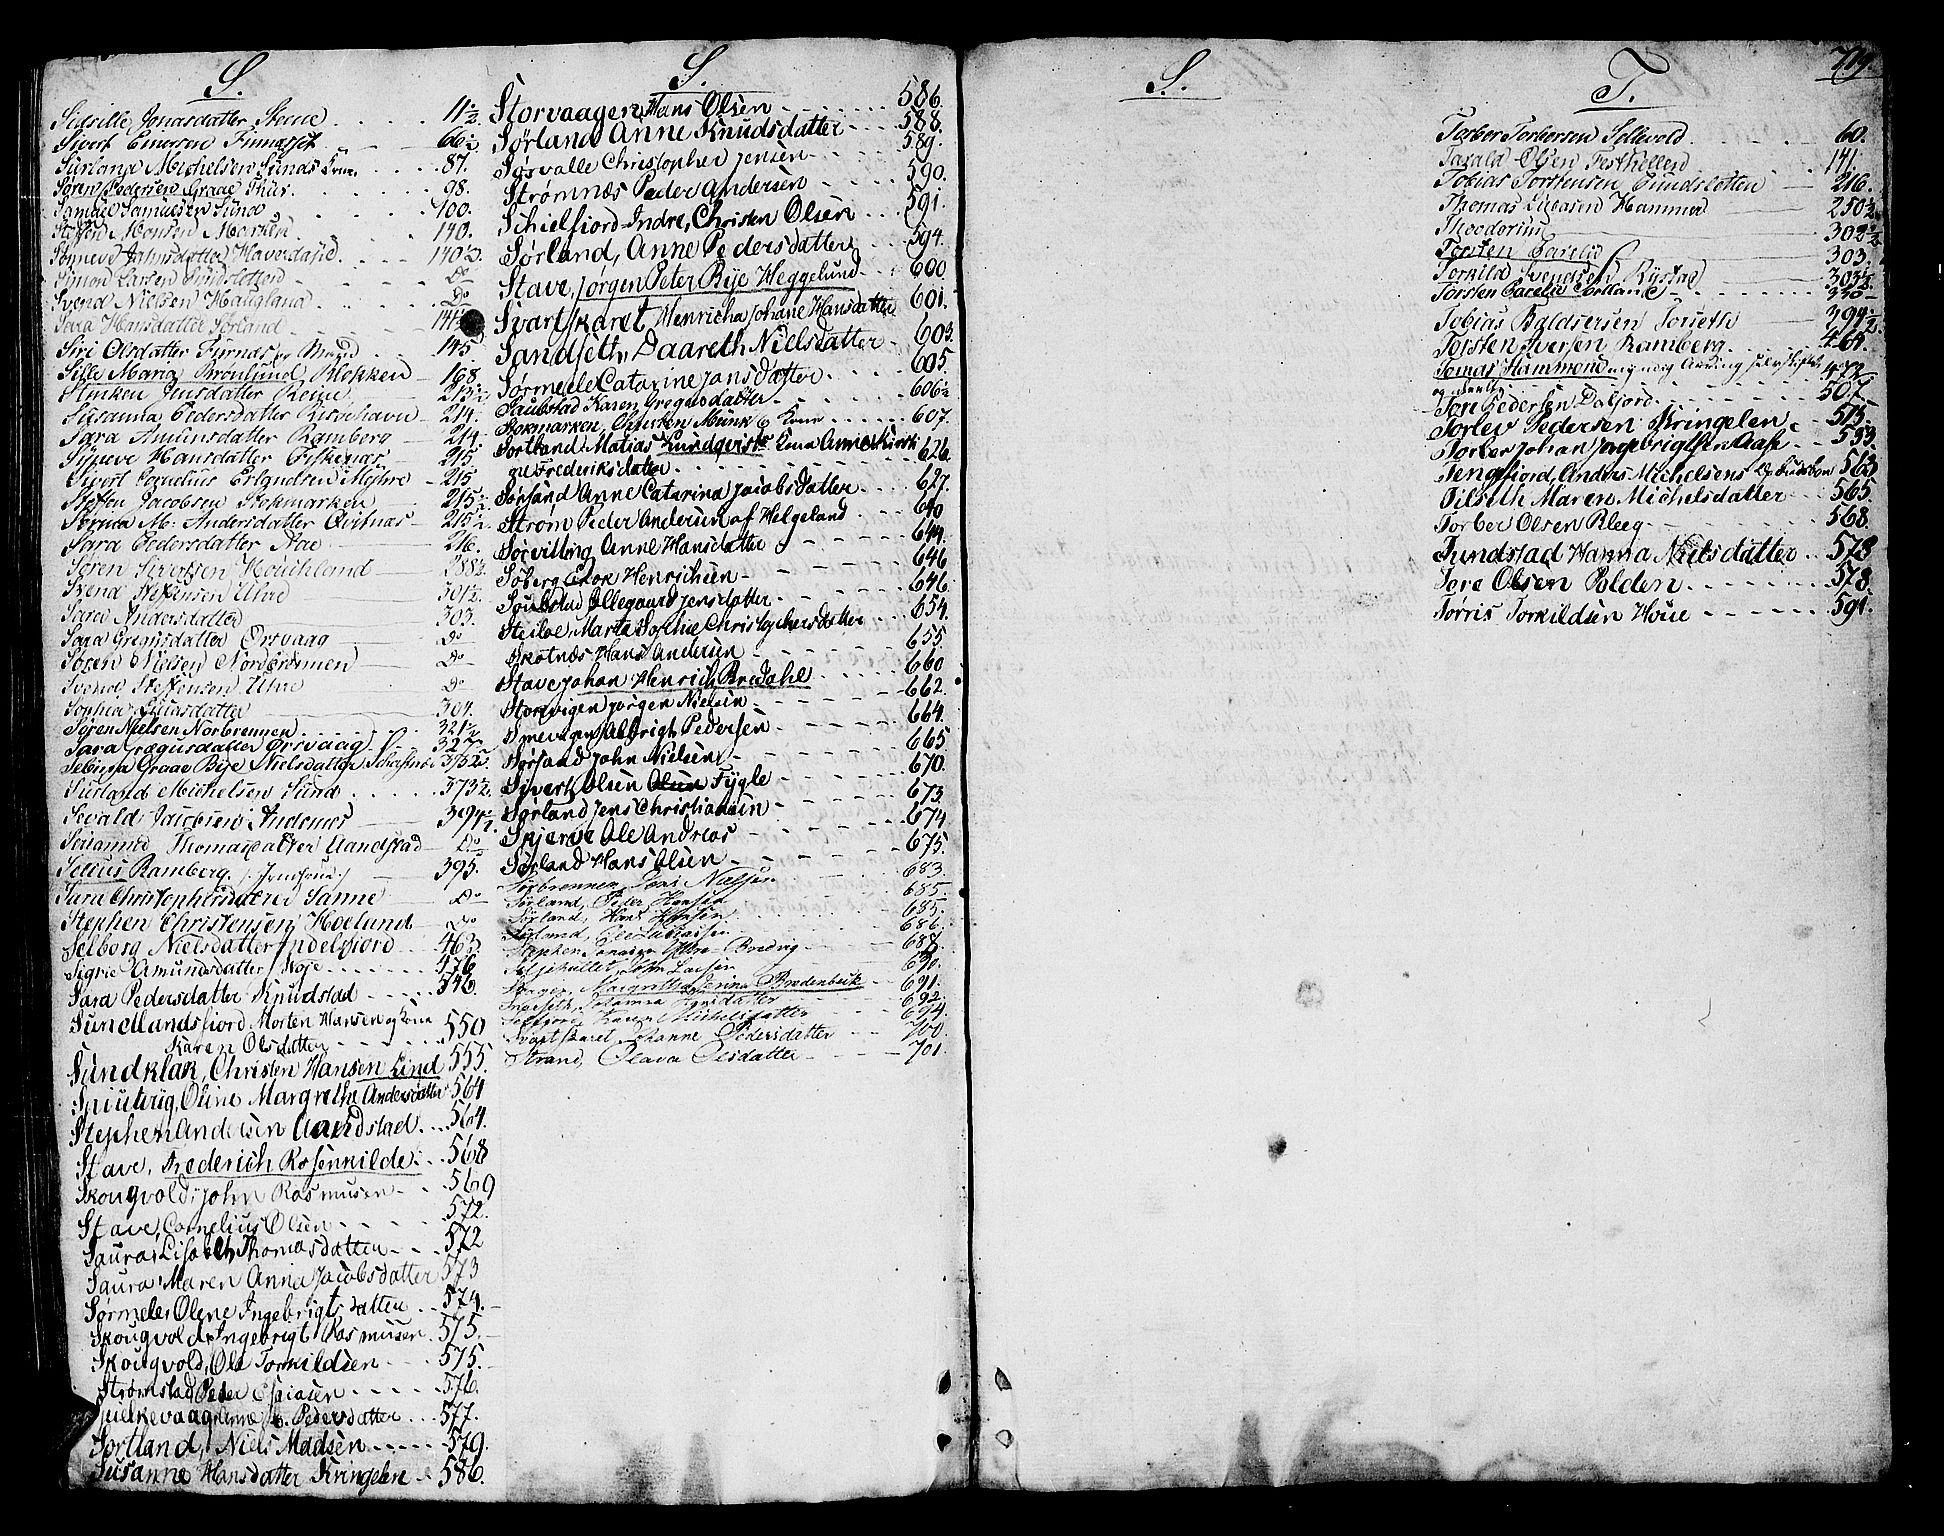 S.
Sidsille Jonasdatter Steene 11½
Sivert Enersen Finnasset 66½
Surland Michelsen Sunds Kone 87.
Søren Pedersen Graae Thür 98.
Samuel Samuelsen Sund 100.
Steffen Monsen Morken 140.
Sønneve Jahnsdatter Haverdahl 140½
Simon Larsen Do
Svend Nielsen Haugland Do
Sara Hansdatter Sørland 144
Siri Olsdatter 145
Sille Maria Brønlund Blokken 168.
Simken Jensdatter Reine 213½
Susanna Pedersdatter Risøehavn 214.
Sara Amundsdatter Ramberg 214.
Syneve Hansdatter Fiskenæs 215
Sivert Cornelius Erlandsen Myhre 215
Steffen Jacobsen Stokmarken 215½
Sørina M: Andersdatter Qvitnæs 215½
Sara Pedersdatter Aae 216.
Søren Sivertsen Houchland 288½
Svend Steffensen Uhre 301½
Sara Andersdatter 303.
Sara Gregusdatter Ørsvaag Do
Søren Nielsen Nordbrennen Do
Svend Steffensen Uhre Do
Sophia Lucasdatter 304.
Søren Nielsen Norbrennen 321½
Sara Grægusdatter Ørsvaag 327
Sebina Graae Bye Nielsdatter 375½
Surland Michelsen Sund 373½
Sevald Jacobsen Andenæs 394½
Susanna Thomasdatter Aandstad Do
Selius Ramberg. 395.
Sara Christophersdatter Sanne Do
Stephen Christensen Hoelund Do
Selborg Nielsdatter Indelfiord 463
Sigrie Amundsdatter Noje 476
Sara Pedersdatter Knudstad 546.
Sundlandsfiord Morten Hansen og Kone
Karen Olsdatter 550
Sundklak, Christen Hansen Lind 555.
Spiuterig, Oline Margrethe Andersdatter 564
Stephen Andersen Aandstad 564.
Stave, Frederich Rosenkilde 568
Skougvold, John Rasmusen 569
Stave, Cornelius Olsen 572.
Saura, Lisabeth Thomasdatter 572
Saura, Maren Anna Jacobsdatter 573
Sørmele, Olene Ingebrigtsdatter 574.
Skougvold, Ingebrigt Rasmusen 575.
Skougvold, Ole Torkildsen 575.
Strømstad, Peder Esaiasen 576.
Pedersdatter 577.
Sortland, Niels Madsen 579.
Susanne Hansdatter Kringelen 586.
S.
Storvaagen, Hans Olsen 586.
Sørland Anne Knudsdatter 588.
Søsvalle Christopher Jensen 589.
Strømnæs Peder Andersen 590.
Schielfiord Indre, Christen Olsen 591.
Sørland, Anne Pedersdatter 594.
Stave, Jørgen Peter Bye Heggelund 600
Svartskaret Henricha Johane Hansdatter 601.
Sandseth, Daareth Nielsdatter 603.
Sørmeele Catarine Jansdatter 605
Saubstad Karen Gregusdatter 606½
Stokmarken, Christen Munk & Kone 607.
Sortland, Matias Lundqvists Kone Anne Kirsti-
ne Frederiksdatter 626
Sørsand Anne Catarina Jacobsdatter 627.
Strøm Peder Andersen af Helgeland 640
Sørvilling Anne Hansdatter 644
Søberg Enok Henrichsen 646
Soubstad Ollegaard Jensdatter 646.
Steiloe, Marta Sophie Christophersdatter 654.
Skotnæs Hans Andersen 655
Stave Johan Henrich Bredahl 660
Storvigen Jørgen Nielsen 662.
Smevagen Albrigt Pedersen 664
Sørsand John Nielsen 665
Sivert Olsen Fygle 670.
Sørland Jens Christiansen 673
Skjerve Ole Andreas 674
Sørland Hans Olsen 675.
Sørbrennen, Jens Nielsen 683
Sørland, Peder Hansen 685.
Sørland, Hans Hansen 685
Sørland, Ole Tobiassen 686.
Stephen Bredvig 688
John Larsen 690.
Margretha Serina Bredenbeck 691.
692.
Selfiord, Karen Michelsdatter 694
Svartskaret, Johanne Pedersdatter 700.
Strand, Olava Olsdatter 701.
S.
T. 719.
Torber Torbersen Sellevold 60.
Tarald Olsen 141.
Tobias Torstensen Sundsletten 216.
Thomas Lucasen Hammer 250½
Theodorius 302½
Torsten Parelie 303.
Torkild Svendsen Rystad 303½
Torsten Parelie Sortland
Tobias Baldsersen Torseth 394½
Torsten Iversen Ramberg 464.
Tomas Hammond 472
Tore Pedersen Dalfjord 507.
Torlev Pedersen Kringelen 515.
Torber Johan Ingebrigtsen Aase 533
Tengsfiord, Anders Michelsens 563
Tilseth Maren Michelsdatter 565.
Torber Olsen Bleeg 568.
Tundstad Hanna Nielsdatter 573
Tore Olsen Polden 578.
Tørris Torkildsen Houe 591.